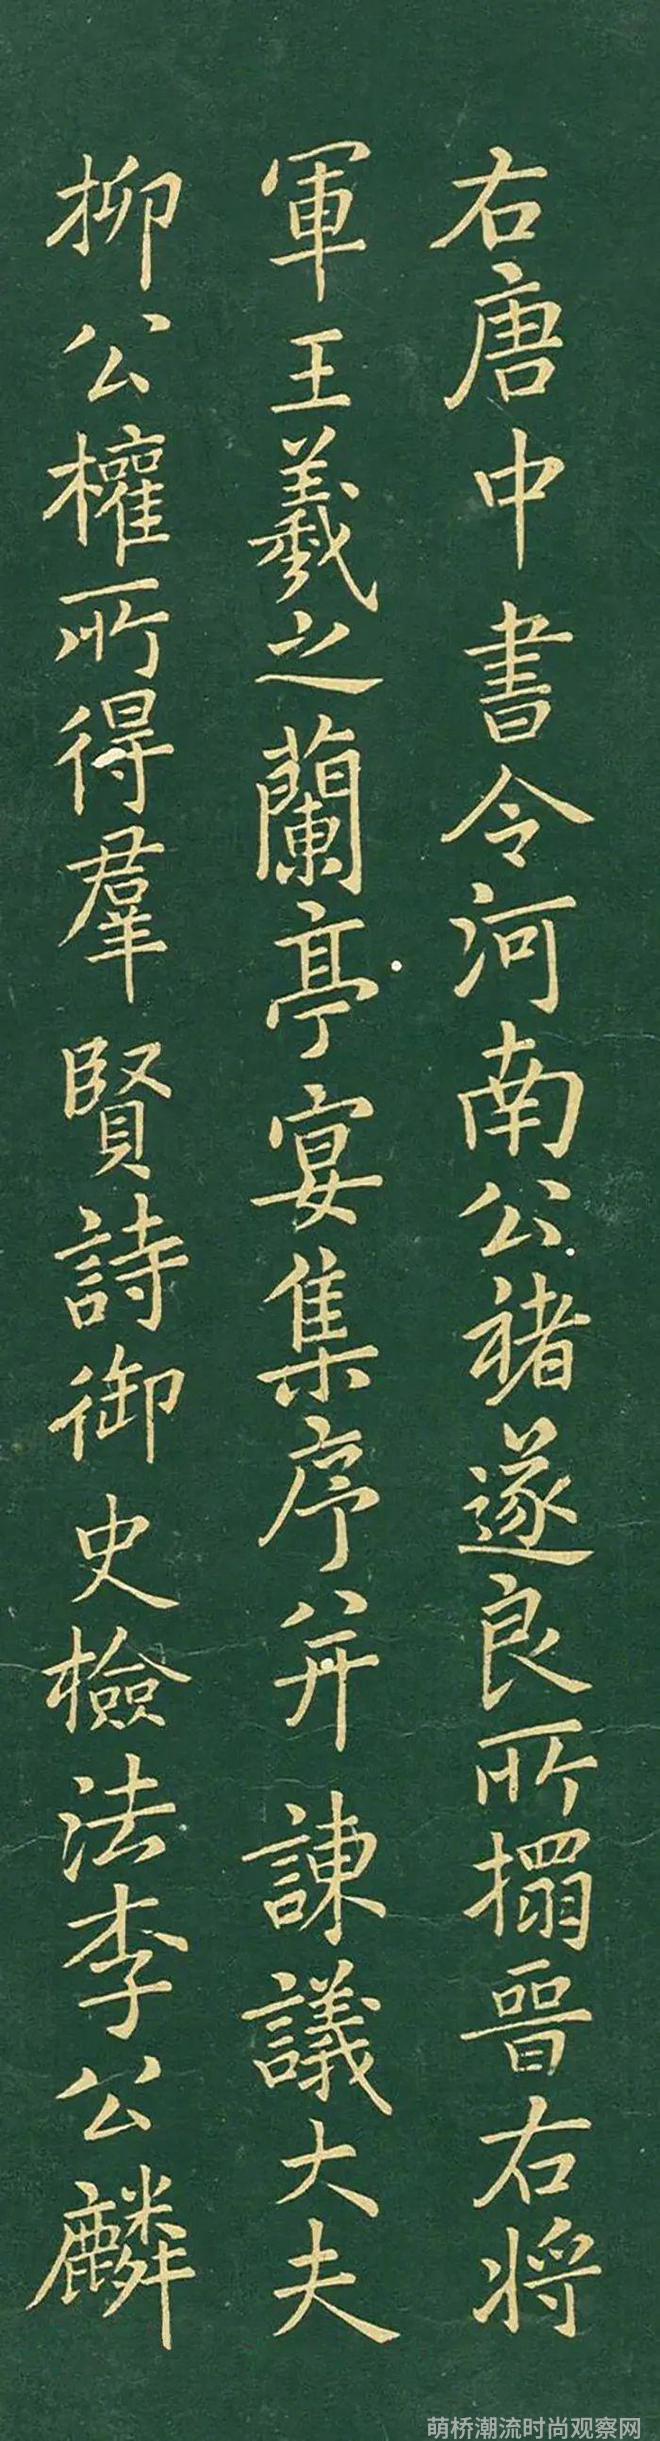 右唐中書令河南公褚遂良所搨晉右將
軍王羲之蘭亭宴集序并諫議大夫
柳公權所得羣賢詩御史檢法李公麟
萌桥潮流时尚观察网